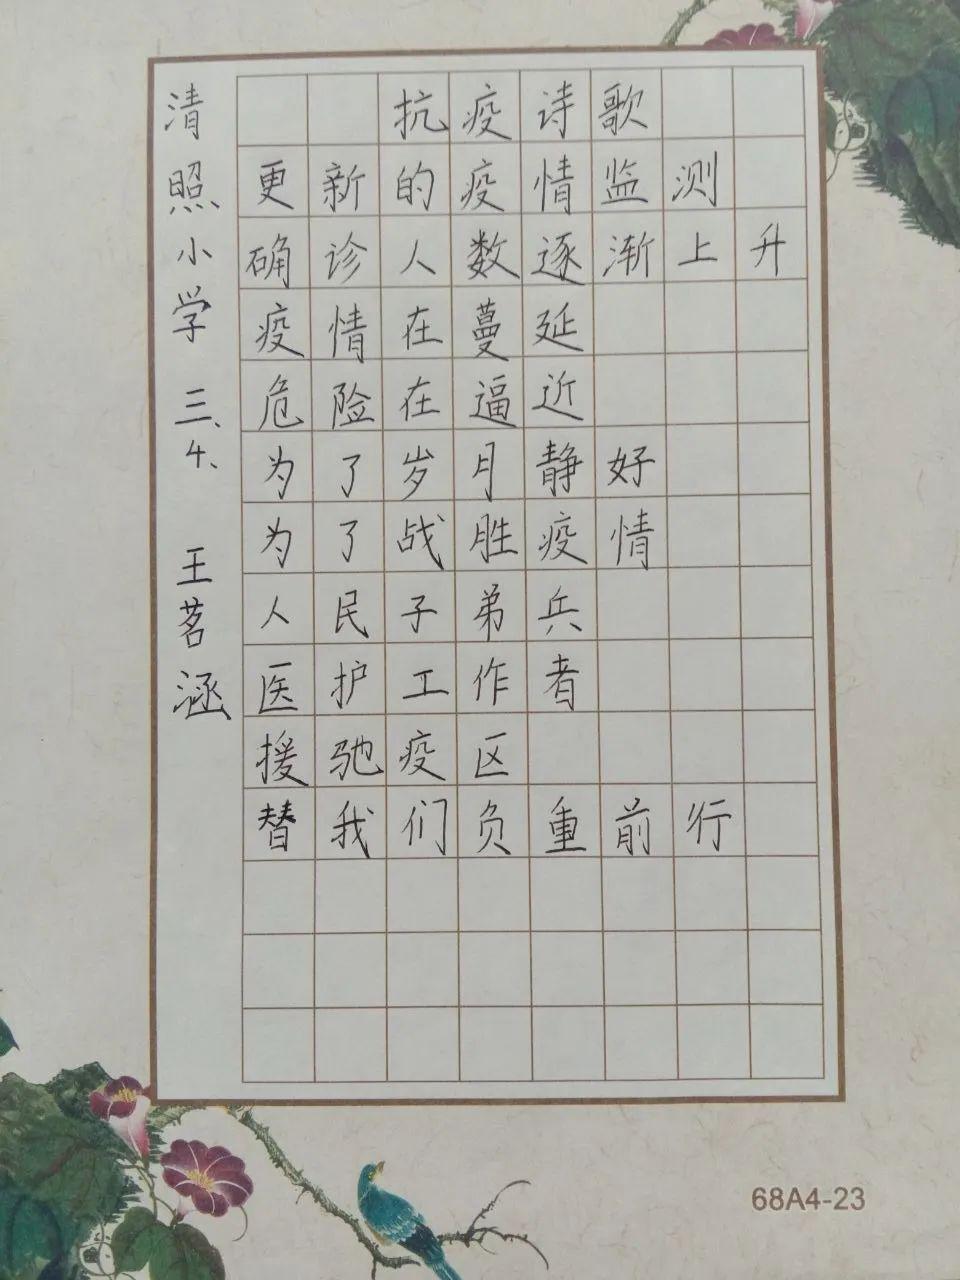 抗疫诗歌
更新的疫情监测
确诊人数逐渐上升
疫情在蔓延
危险在逼近
为了岁月静好
为了战胜疫情
人民子弟兵
医护工作者
援驰疫区
替我们负重前行
清照小学 三、4、 王茗涵
68A4-23